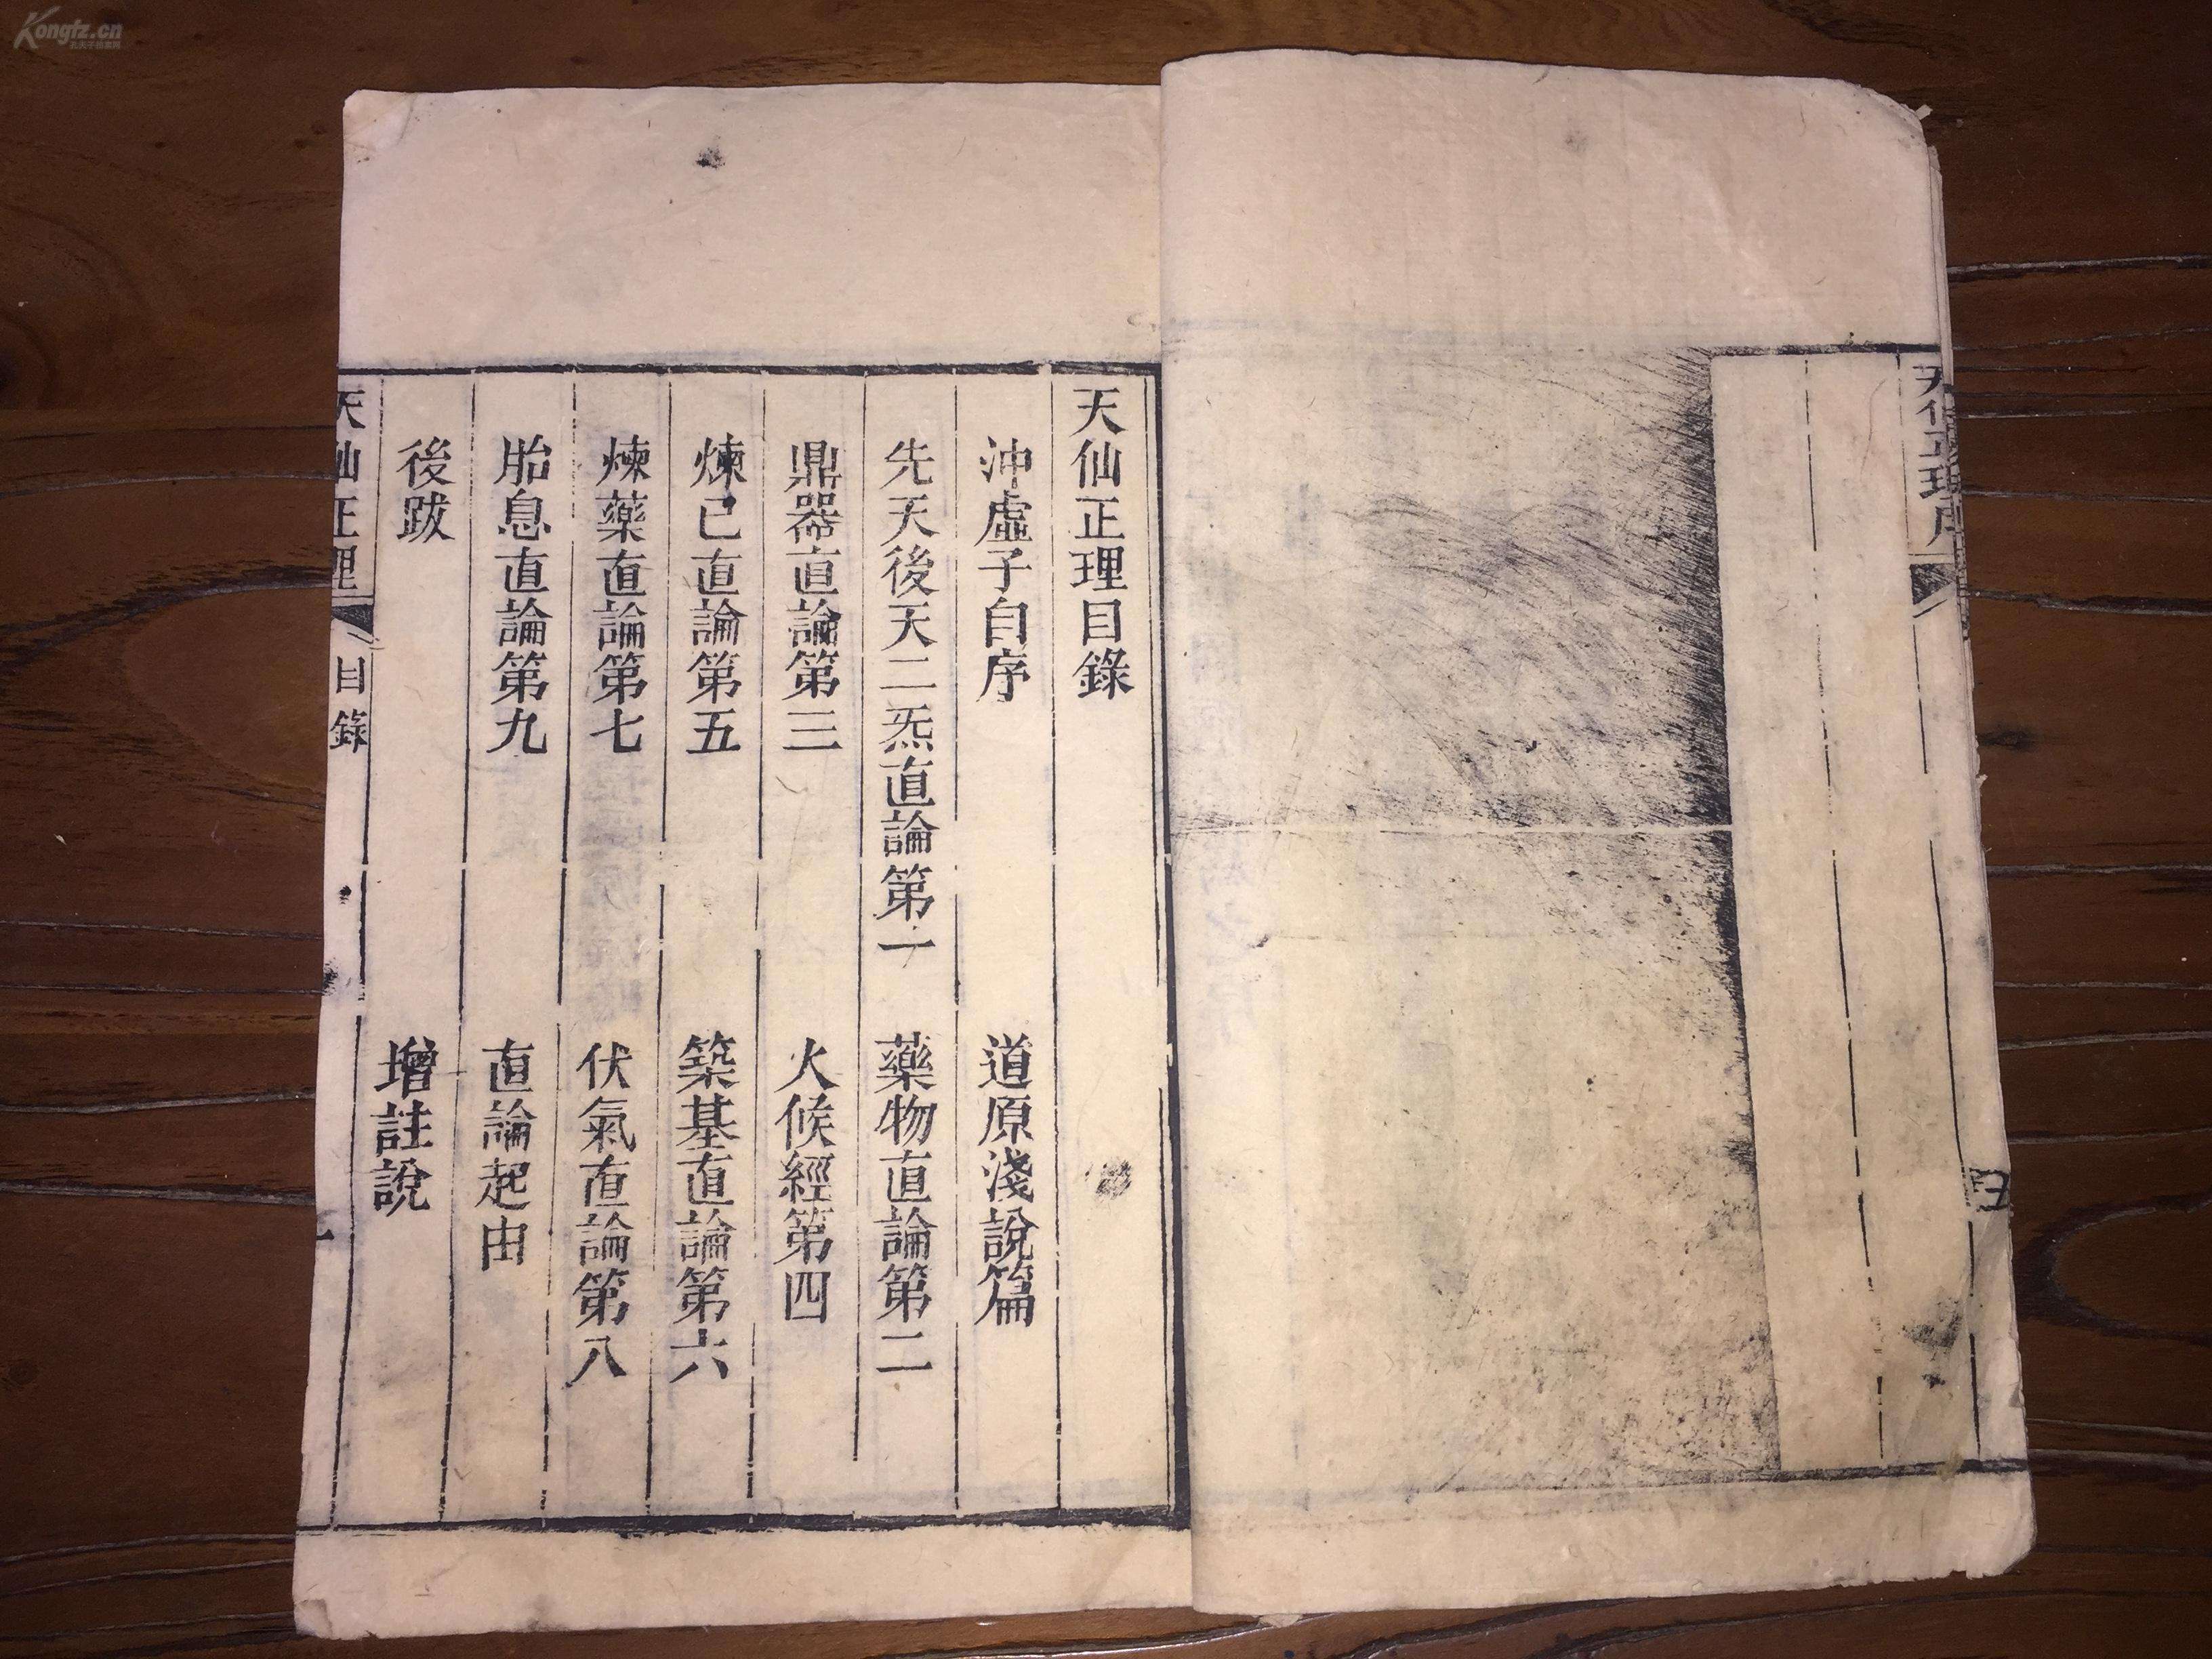 Kongfz.cn
天仙正理序
五
天仙正理目錄
沖虛子自序 道原淺說篇
先天後天二炁直論第一 藥物直論第二
鼎器直論第三 火候經第四
煉己直論第五 築基直論第六
煉藥直論第七 伏氣直論第八
胎息直論第九 直論起由
後跋 增註說
天仙正理 目錄 一